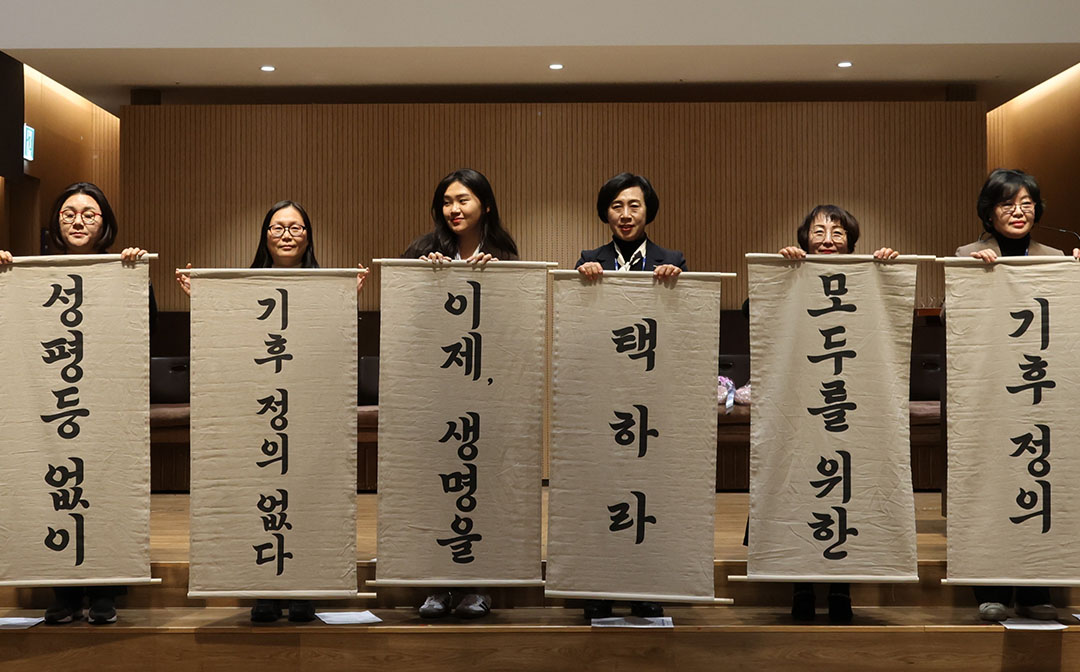 성평등 없이
기후 정의 없다
이제, 생명을
택하라
모두를 위한
기후 정의